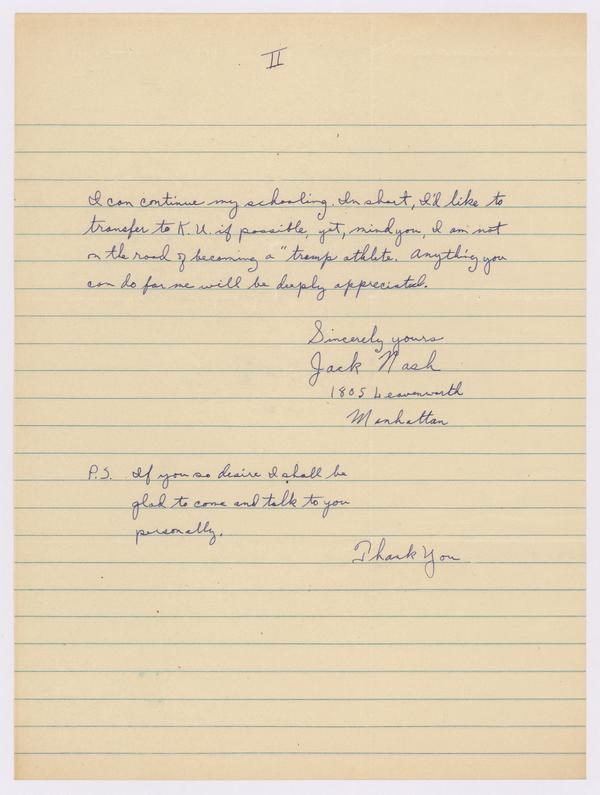 II
I can continue my schooling. In short, I'd like to
transfer to K.U. if possible, yet, mind you, I am not
on the road of becoming a "tramp athlete. Anything you
can do for me will be deeply appreciated.
Sincerely yours
Jack Nash
1805 Leavenworth
Manhattan
P.S. If you so desire I shall be
glad to come and talk to you
personally.
Thank You